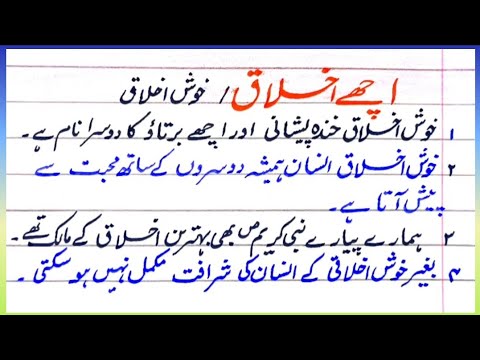 اچھے اخلاق / خوش اخلاقی
۱ خوش اخلاقی خندہ پیشانی اور اچھے برتاؤ کا دوسرا نام ہے۔
۲ خوش اخلاق انسان ہمیشہ دوسروں کے ساتھ محبت سے
پیش آتا ہے۔
۳ ہمارے پیارے نبی کریم ؐ بھی بہترین اخلاق کے مالک تھے۔
۴ بغیر خوش اخلاقی کے انسان کی شرافت مکمل نہیں ہو سکتی۔